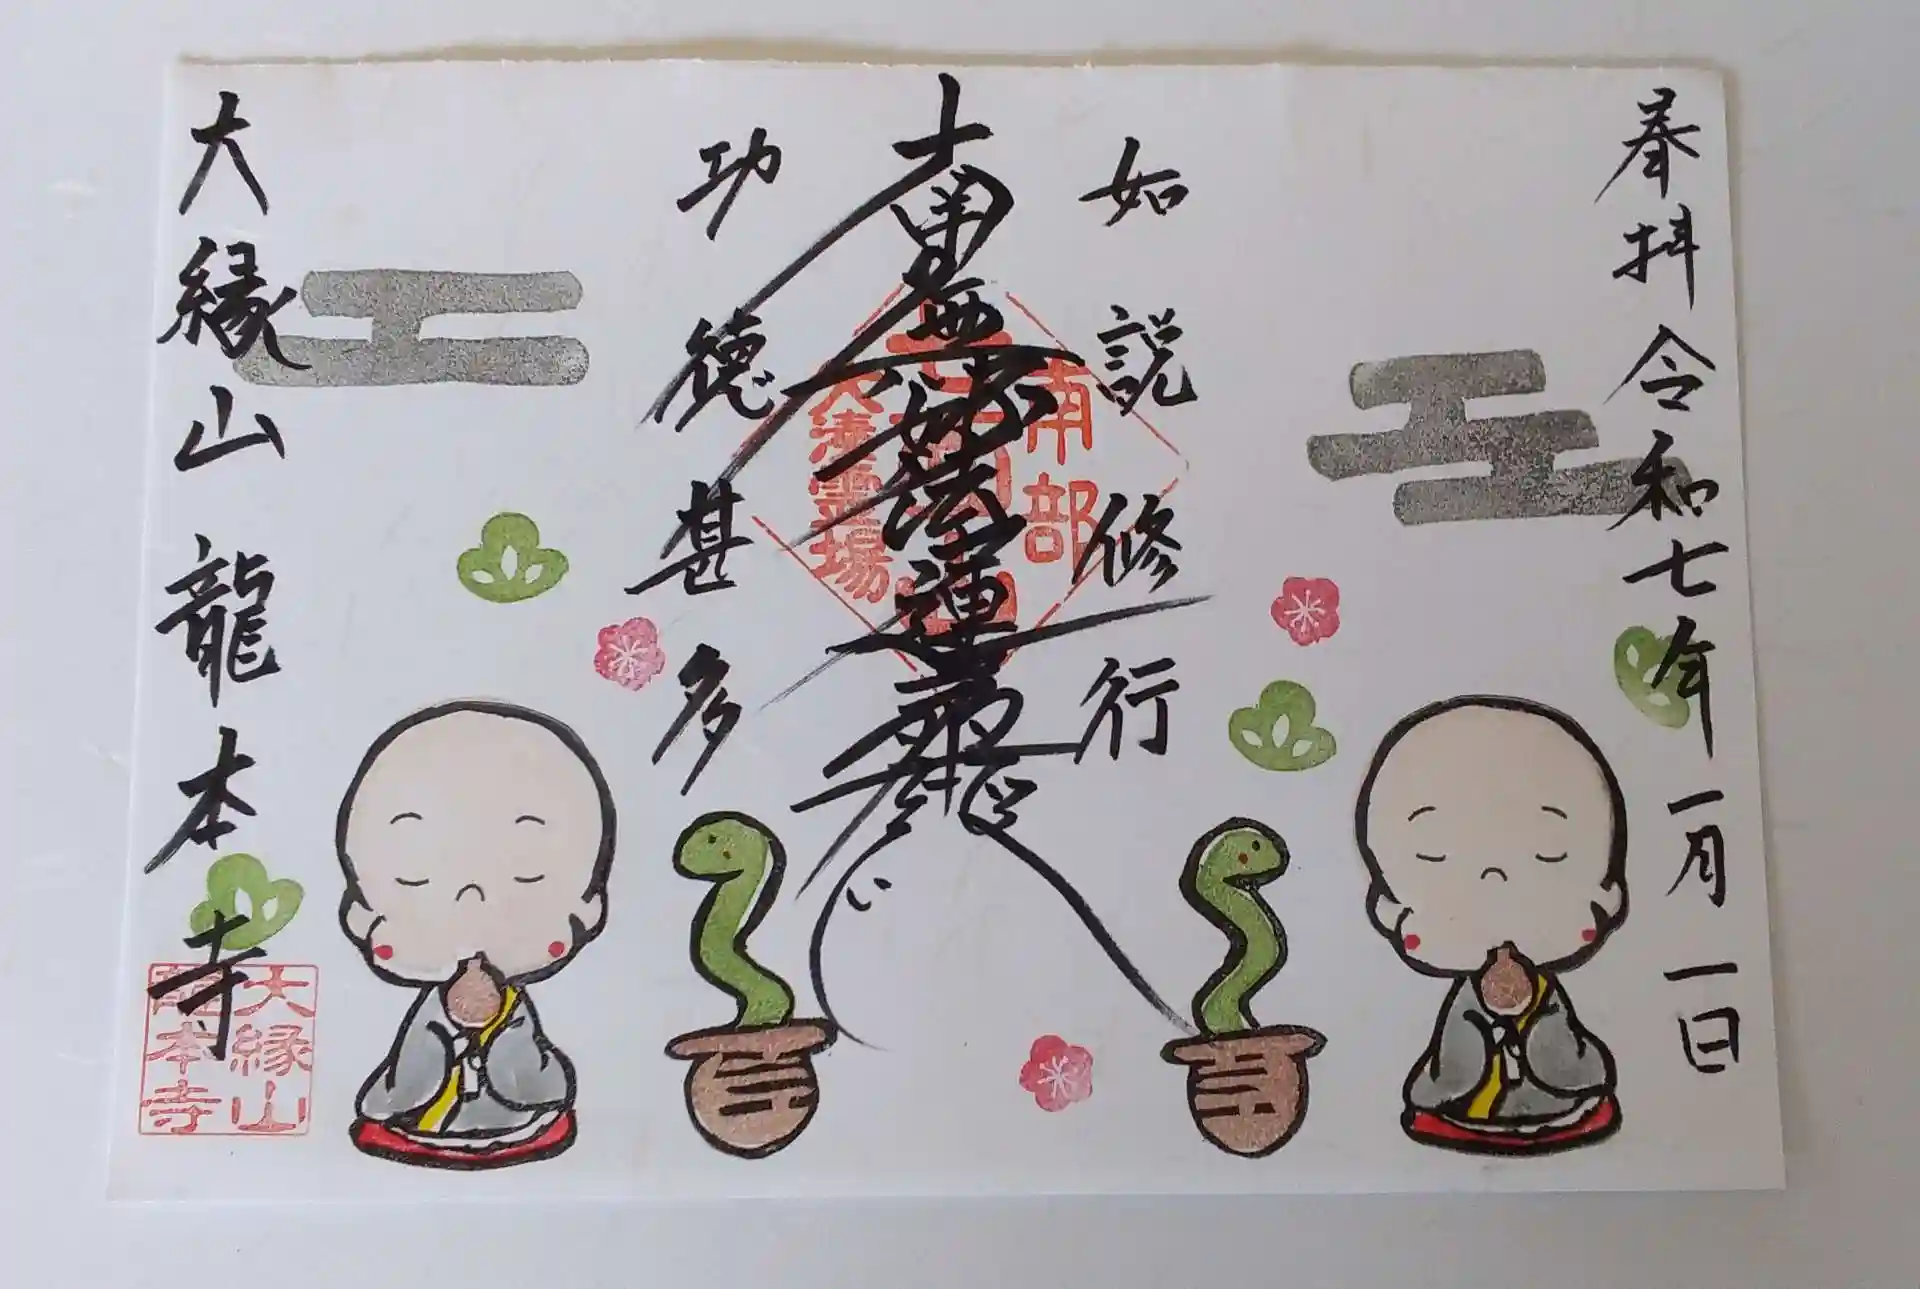 奉拝 令和七年一月一日
如説修行
南無妙法蓮華経
功徳甚多
大縁山 龍本寺
南部
霊場
大縁山
龍本寺